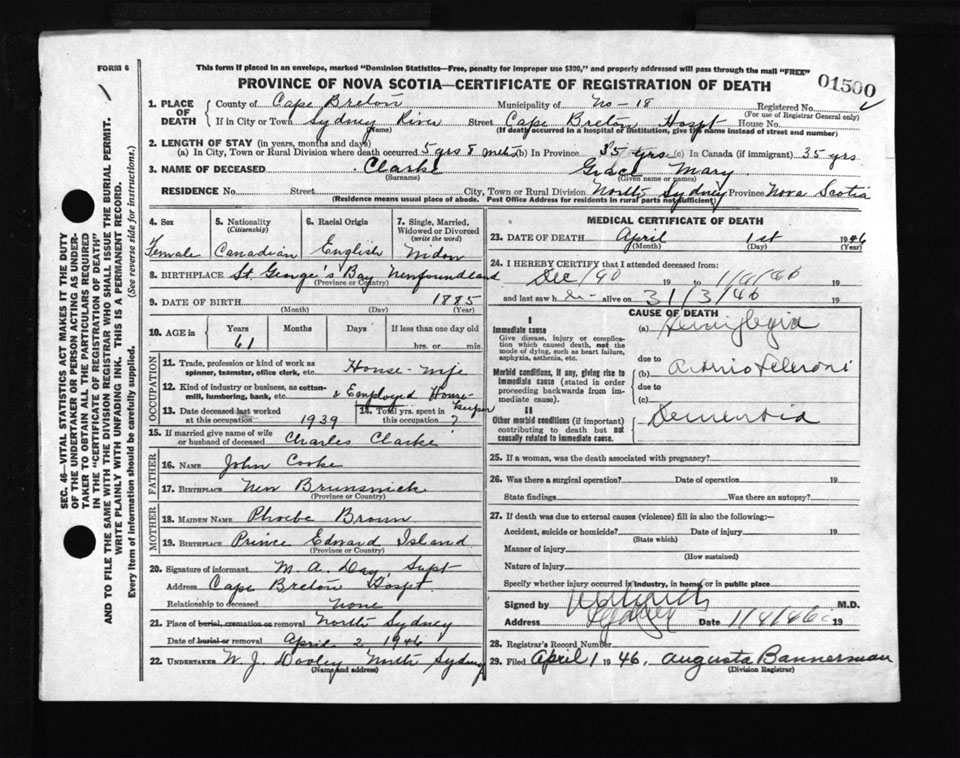 This form if placed in an envelope, marked "Dominion Statistics—Free, penalty for improper use $300," and properly addressed will pass through the mail "FREE"
FORM 6
PROVINCE OF NOVA SCOTIA—CERTIFICATE OF REGISTRATION OF DEATH
01500
1. PLACE OF DEATH { County of Cape Breton Municipality of No-18 Registered No.
(For use of Registrar General only)
If in City or Town Sydney River Street Cape Breton Hospt House No.
(Name) (If death occurred in a hospital or institution, give the name instead of street and number)
2. LENGTH OF STAY (in years, months and days)
(a) In City, Town or Rural Division where death occurred 5 yrs 8 mths (b) In Province 35 yrs (c) In Canada (if immigrant) 35 yrs
3. NAME OF DECEASED Clarke Grace Mary
(Surname) (Given name or names)
RESIDENCE No. Street City, Town or Rural Division North Sydney Province Nova Scotia
(Residence means usual place of abode. Post Office Address for residents in rural parts not sufficient)
SEC. 46—VITAL STATISTICS ACT MAKES IT THE DUTY
OF THE UNDERTAKER OR PERSON ACTING AS UNDER-
TAKER TO OBTAIN ALL THE PARTICULARS REQUIRED
IN THE "CERTIFICATE OF REGISTRATION OF DEATH"
AND TO FILE THE SAME WITH THE DIVISION REGISTRAR WHO SHALL ISSUE THE BURIAL PERMIT.
WRITE PLAINLY WITH UNFADING INK. THIS IS A PERMANENT RECORD.
Every item of information should be carefully supplied. (See reverse side for instructions.)
4. Sex 5. Nationality (Citizenship) 6. Racial Origin 7. Single, Married, Widowed or Divorced (write the word)
Female Canadian English Widow
8. BIRTHPLACE St. George's Bay Newfoundland
(Province or Country)
9. DATE OF BIRTH 1885
(Month) (Day) (Year)
10. AGE in { Years Months Days If less than one day old
61 hrs. or min.
OCCUPATION
11. Trade, profession or kind of work as spinner, teamster, office clerk, etc. House-wife
12. Kind of industry or business, as cotton-mill, lumbering, bank, etc. & Employed House-keeper
13. Date deceased last worked at this occupation 1939 14. Total yrs. spent in this occupation ?
15. If married give name of wife or husband of deceased Charles Clarke
FATHER
16. NAME John Cooke
17. BIRTHPLACE New Brunswick
(Province or Country)
MOTHER
18. MAIDEN NAME Phoebe Brown
19. BIRTHPLACE Prince Edward Island
(Province or Country)
20. Signature of informant M. A. Day, Supt
Address Cape Breton Hospt.
Relationship to deceased None
21. Place of burial, cremation or removal North Sydney
Date of burial or removal April 2 1946
22. UNDERTAKER W. J. Dooley North Sydney
(Name and address)
MEDICAL CERTIFICATE OF DEATH
23. DATE OF DEATH April 1st 1946
(Month) (Day) (Year)
24. I HEREBY CERTIFY that I attended deceased from:
Dec/40 19 to 1/4/46 19
and last saw h er alive on 31/3/46 19
CAUSE OF DEATH
I
Immediate cause
Give disease, injury or complication which caused death, not the mode of dying, such as heart failure, asphyxia, asthenia, etc.
(a) Hemiplegia
due to
Morbid conditions, if any, giving rise to immediate cause (stated in order proceeding backwards from immediate cause).
(b)
due to
(c)
II
Other morbid conditions (if important) contributing to death but not causally related to immediate cause.
Dementia
25. If a woman, was the death associated with pregnancy?
26. Was there a surgical operation? Date of operation 19
State findings Was there an autopsy?
27. If death was due to external causes (violence) fill in also the following:—
Accident, suicide or homicide? Date of injury 19
(State which)
Manner of injury
(How sustained)
Nature of injury
Specify whether injury occurred in industry, in home, or in public place
Signed by M.D.
Address Sydney Date 1/4/46 19
28. Registrar's Record Number
29. Filed April 1 1946, Augusta Bannerman
(Division Registrar)